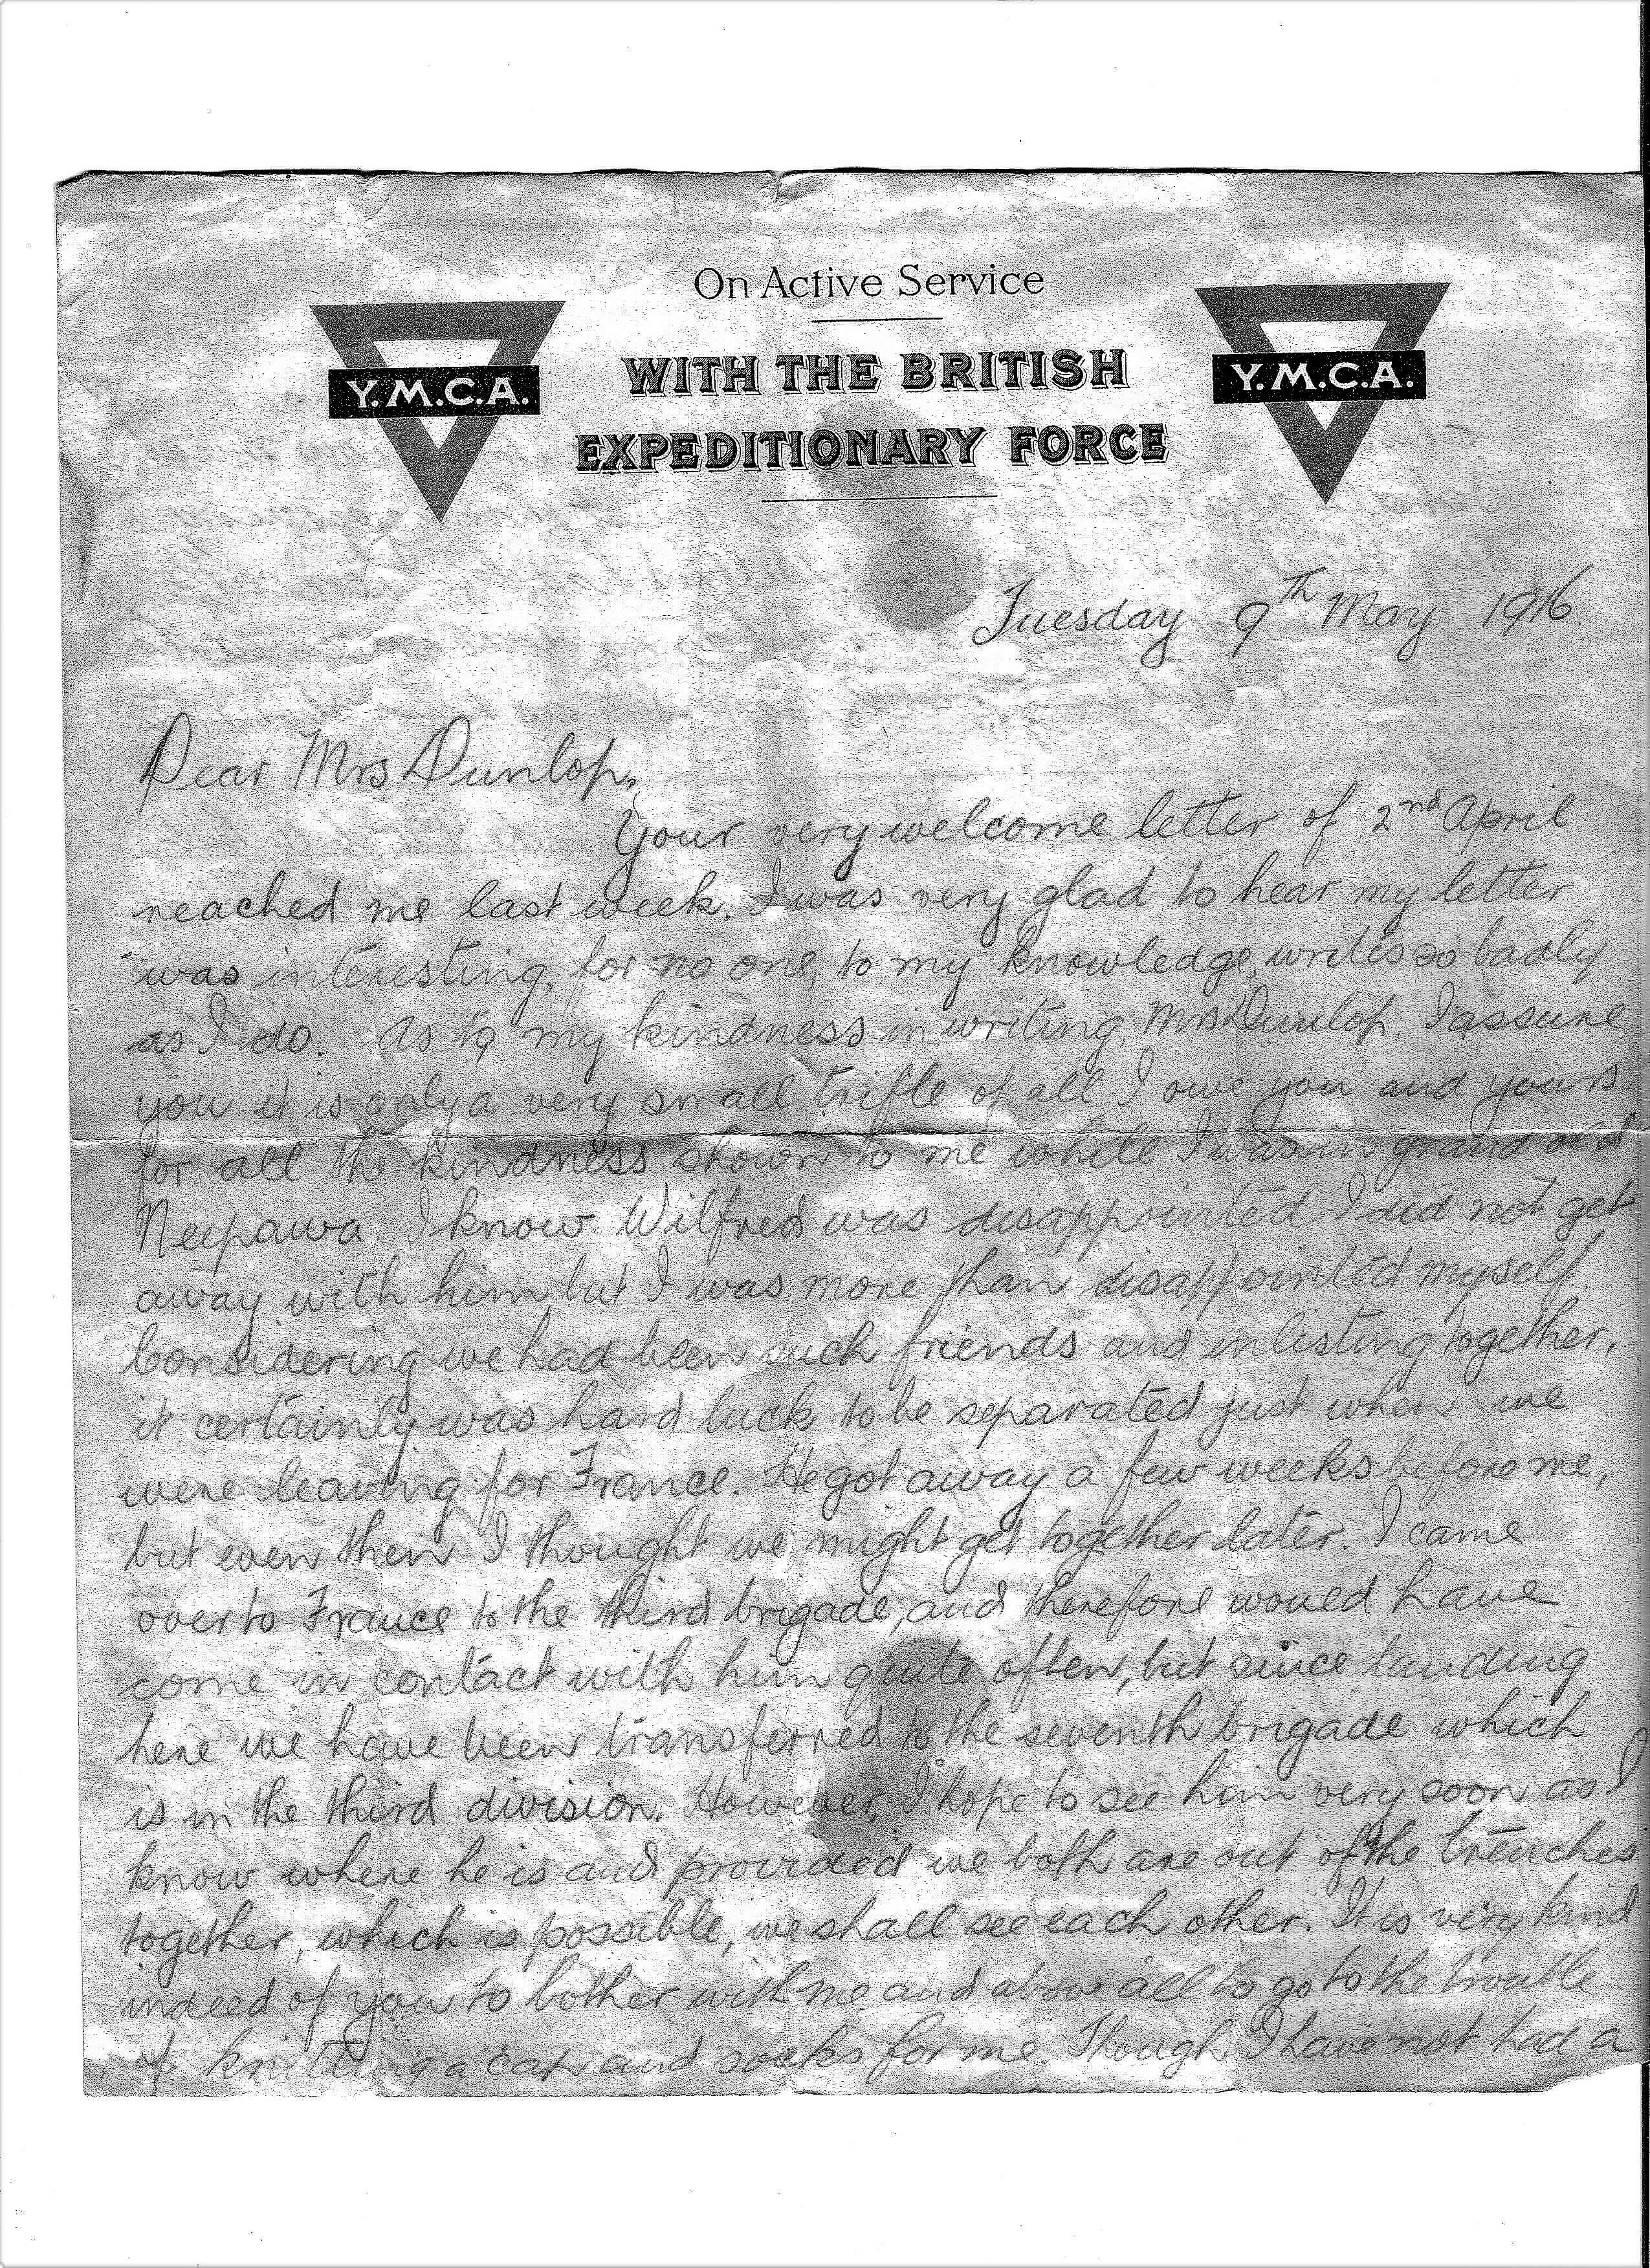 On Active Service
Y.M.C.A.
WITH THE BRITISH
Y.M.C.A.
EXPEDITIONARY FORCE
Tuesday 9th May 1916.
Dear Mrs Dunlop,
Your very welcome letter of 2nd April
reached me last week. I was very glad to hear my letter
was interesting, for no one, to my knowledge, writes so badly
as I do. As to my kindness in writing, Mrs Dunlop, I assure
you it is only a very small trifle of all I owe you and yours
for all the kindness shown to me while I was in grand old
Neepawa. I know Wilfred was disappointed I did not get
away with him but I was more than disappointed myself.
Considering we had been such friends and enlisting together,
it certainly was hard luck to be separated just when we
were leaving for France. He got away a few weeks before me,
but even then I thought we might get together later. I came
over to France to the third brigade, and therefore would have
come in contact with him quite often, but since landing
here we have been transferred to the seventh brigade which
is in the third division. However, I hope to see him very soon as I
know where he is and provided we both are out of the trenches
together, which is possible, we shall see each other. It is very kind
indeed of you to bother with me and above all to go to the trouble
of knitting a cap and socks for me. Though I have not had a